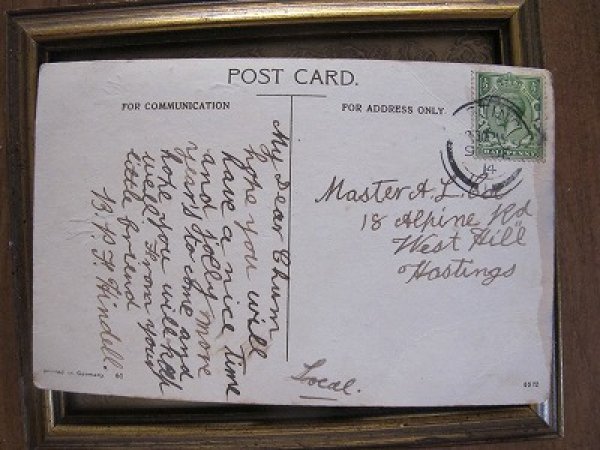 POST CARD.
FOR COMMUNICATION
FOR ADDRESS ONLY.
My Dear Chum
hope you will
have a nice time
and jolly more
years to come and
hope you will keep
well. From your
little friend
B. P. F. Hindell.
Master A. L.
18 Alpine Rd
West Hill
Hastings
Local.
Printed in Germany
HALFPENNY
14